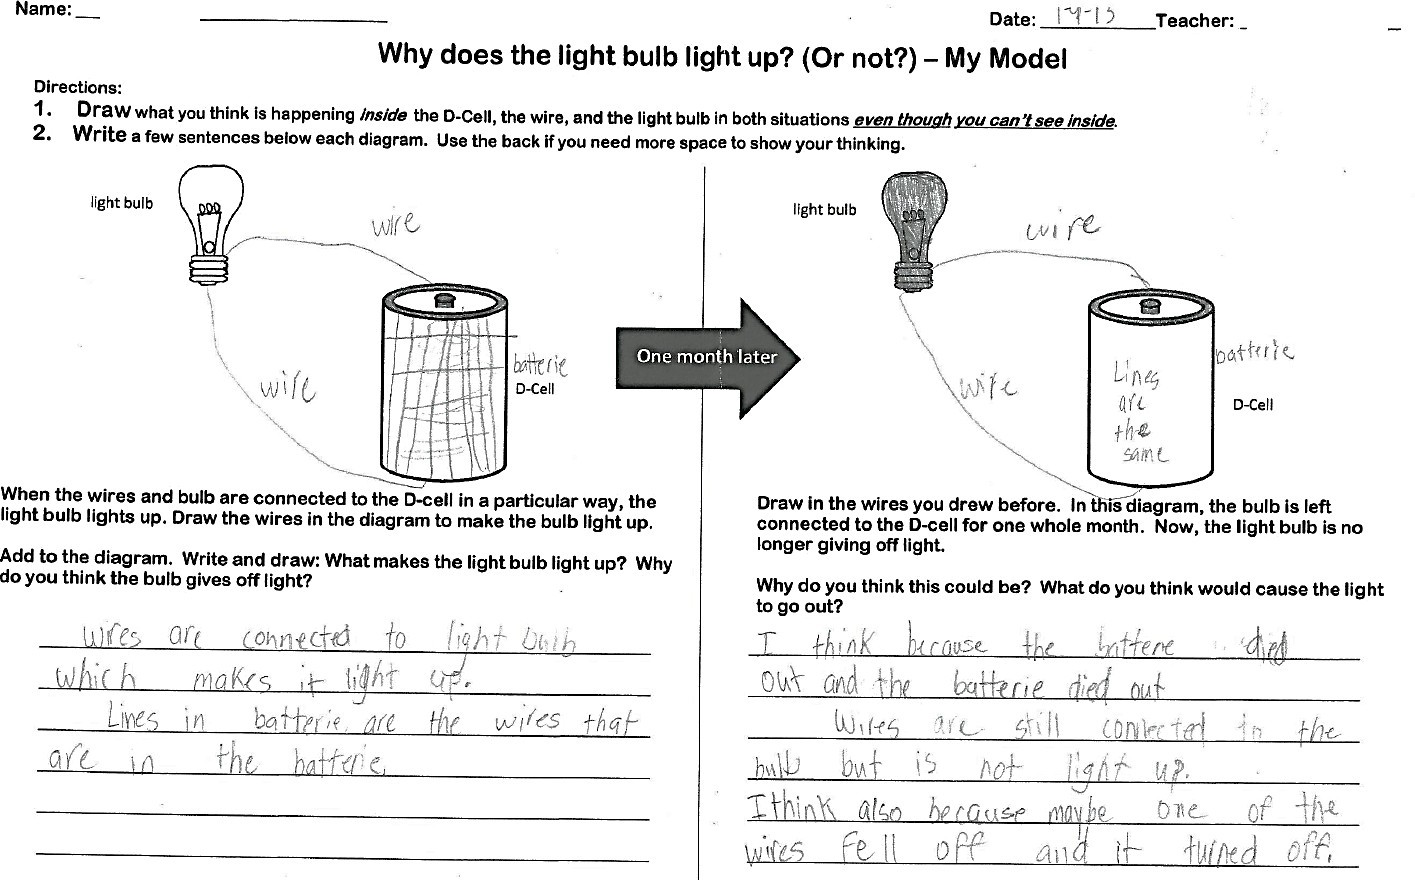 Name:
Date: 14-15 Teacher:
Why does the light bulb light up? (Or not?) – My Model
Directions:
1. Draw what you think is happening inside the D-Cell, the wire, and the light bulb in both situations even though you can't see inside.
2. Write a few sentences below each diagram. Use the back if you need more space to show your thinking.
light bulb
wire
wire
batterie
D-Cell
One month later
light bulb
wire
wire
batterie
D-Cell
Lines
are
the
same
When the wires and bulb are connected to the D-cell in a particular way, the
light bulb lights up. Draw the wires in the diagram to make the bulb light up.
Add to the diagram. Write and draw: What makes the light bulb light up? Why
do you think the bulb gives off light?
wires are connected to light bulb
which makes it light up.
Lines in batterie are the wires that
are in the batterie.
Draw in the wires you drew before. In this diagram, the bulb is left
connected to the D-cell for one whole month. Now, the light bulb is no
longer giving off light.
Why do you think this could be? What do you think would cause the light
to go out?
I think because the batterie died
out and the batterie died out
Wires are still connected to the
bulb but is not light up.
I think also because maybe one of the
wires fell off and it turned off.